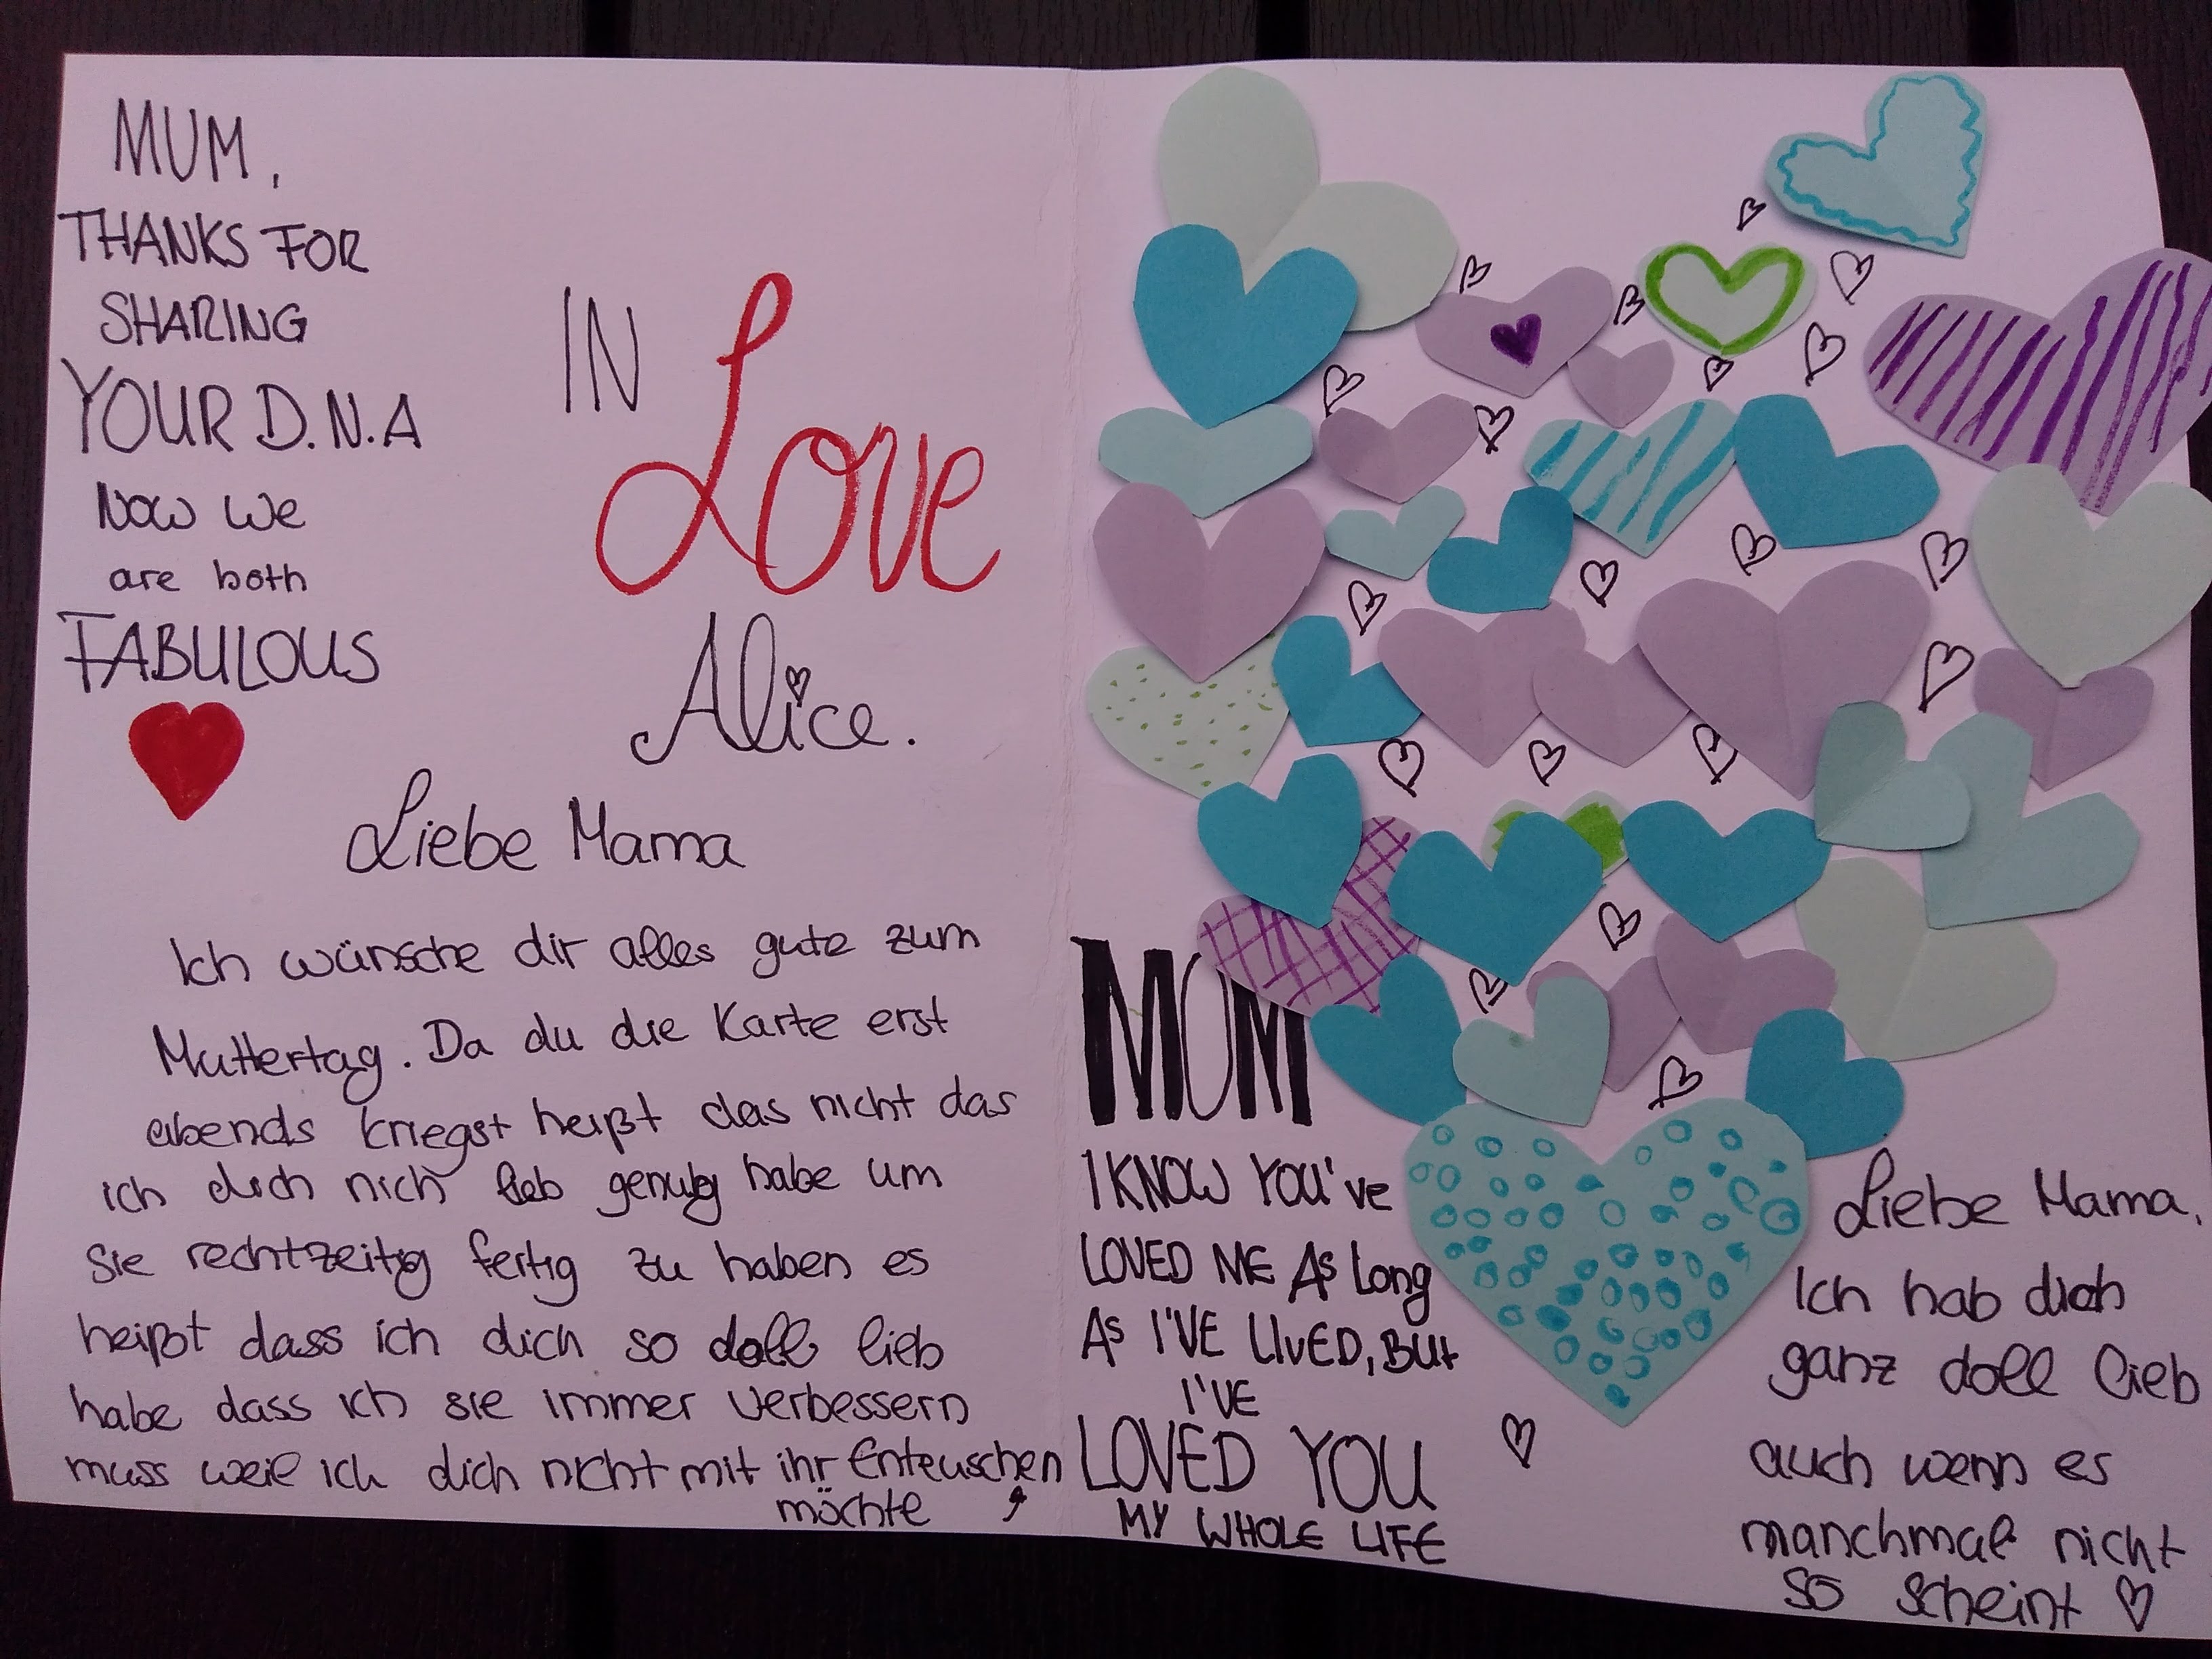 MUM,
THANKS FOR
SHARING
YOUR D.N.A
NOW WE
are both
FABULOUS
IN
Love
Alice.
Liebe Mama
Ich wünsche dir alles gute zum
Muttertag. Da du die Karte erst
abends kriegst heißt das nicht das
ich dich nich lieb genug habe um
sie rechtzeitig fertig zu haben es
heißt dass ich dich so doll lieb
habe dass ich sie immer verbessern
muss weil ich dich nicht mit ihr Enteuschen
möchte
MOM
I KNOW YOU've
LOVED ME AS Long
AS I'VE LIVED, BUt
I'VE
LOVED YOU
MY WHOLE LIFE
Liebe Mama,
Ich hab dich
ganz doll lieb
auch wenn es
manchmal nicht
so scheint